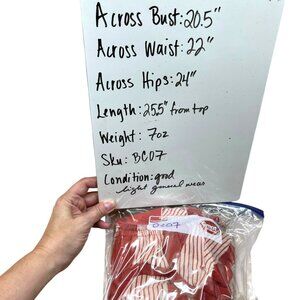 Across Bust: 20.5"
Across Waist: 22"
Across Hips: 24"
Length: 25.5" from top
Weight: 7oz
Sku: BC07
Condition: good
light general wear
BC07